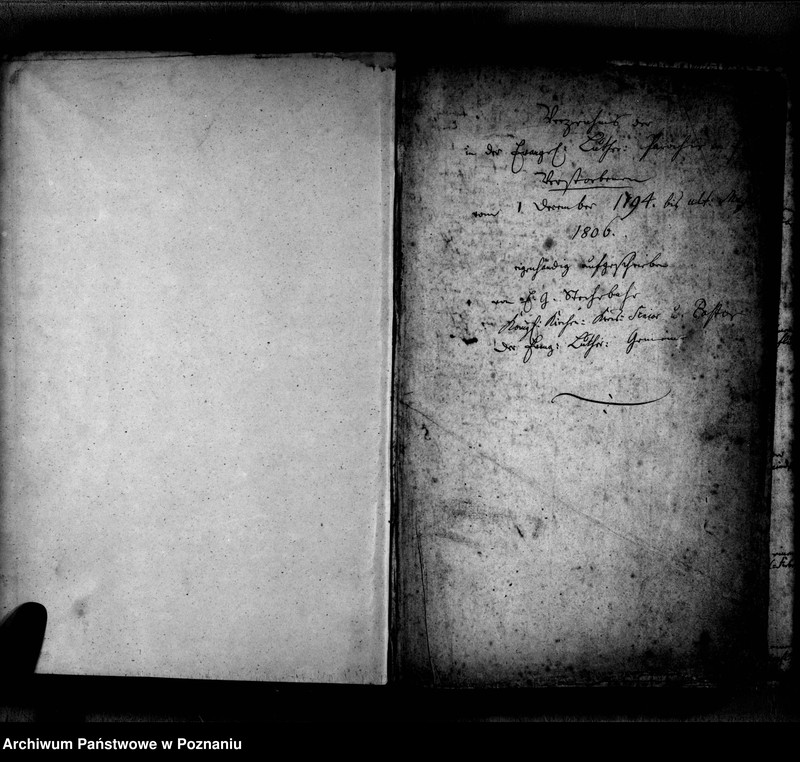 Verzeichnis der
in der Evangel: Luther: Parochie
Verstorbenen
vom 1. December 1794. bis ult. May
1806.
eigenhändig aufgeschrieben
von G. Stechebahr
Königl: Kirchen: Kreis: Senior u. Pastor
der Evang: Luther: Gemeine
Archiwum Państwowe w Poznaniu